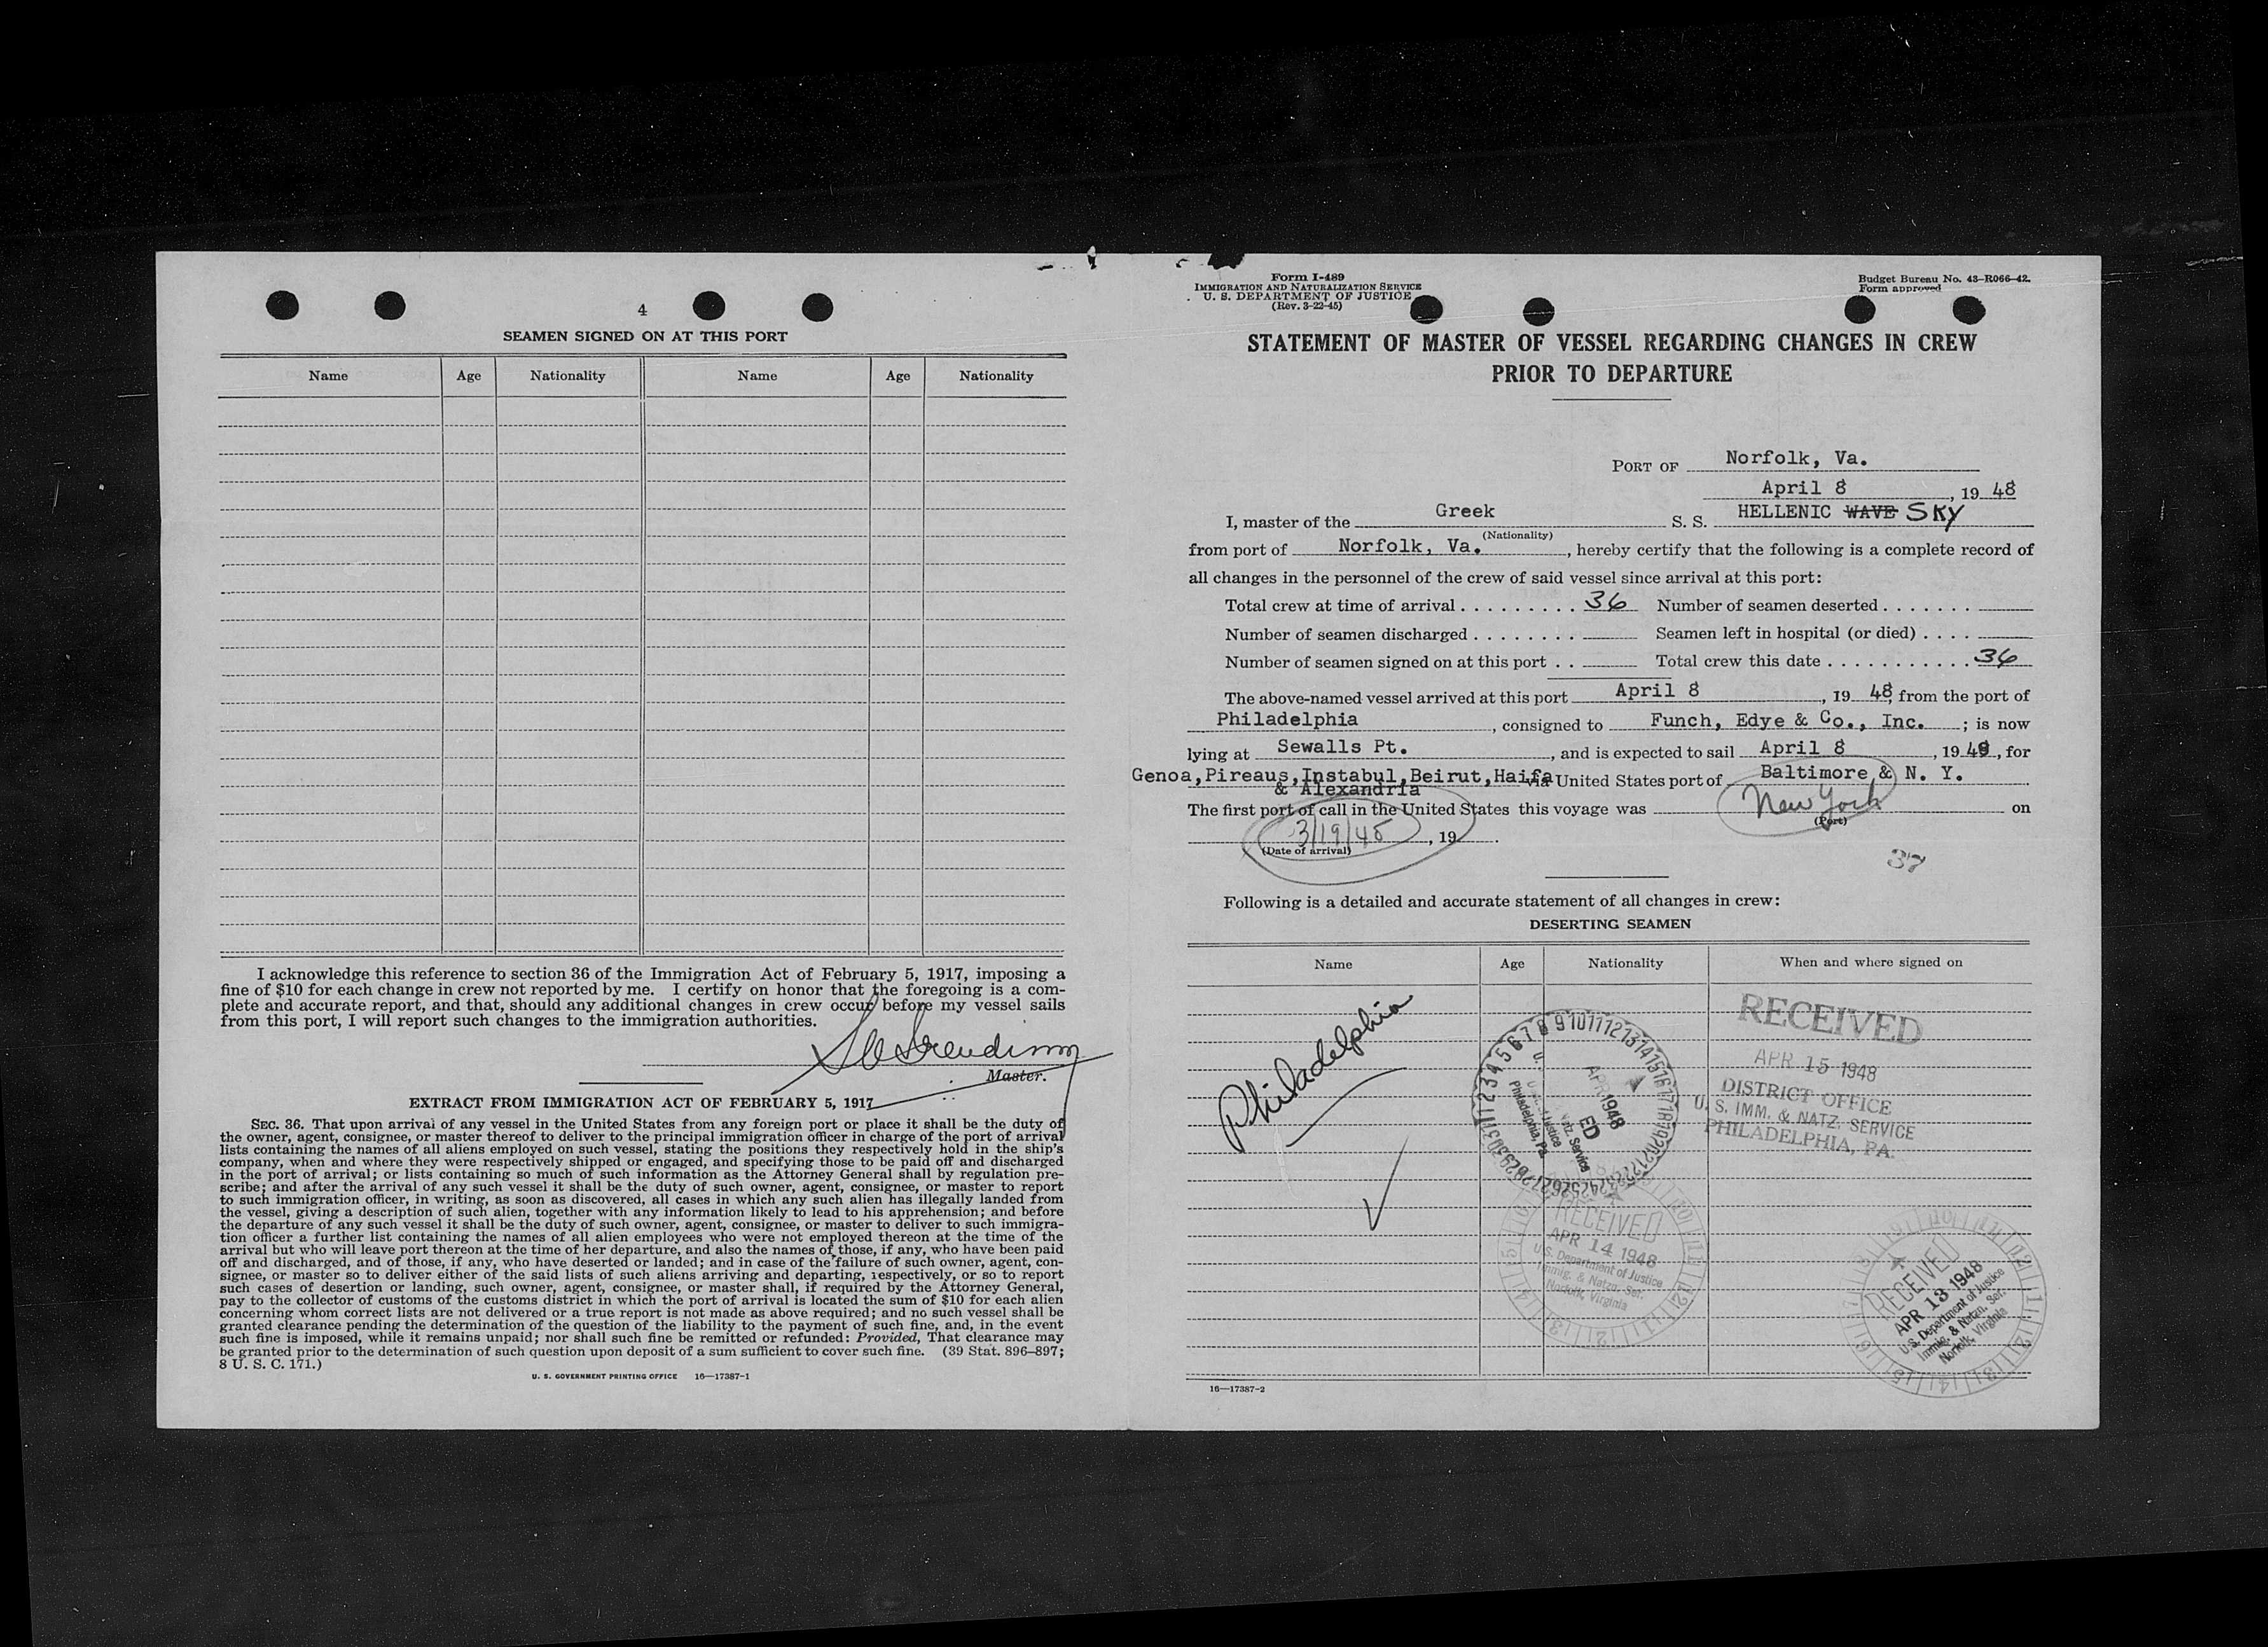 4
SEAMEN SIGNED ON AT THIS PORT
Name Age Nationality Name Age Nationality
I acknowledge this reference to section 36 of the Immigration Act of February 5, 1917, imposing a
fine of $10 for each change in crew not reported by me. I certify on honor that the foregoing is a com-
plete and accurate report, and that, should any additional changes in crew occur before my vessel sails
from this port, I will report such changes to the immigration authorities.
Master.
EXTRACT FROM IMMIGRATION ACT OF FEBRUARY 5, 1917
SEC. 36. That upon arrival of any vessel in the United States from any foreign port or place it shall be the duty of
the owner, agent, consignee, or master thereof to deliver to the principal immigration officer in charge of the port of arrival
lists containing the names of all aliens employed on such vessel, stating the positions they respectively hold in the ship's
company, when and where they were respectively shipped or engaged, and specifying those to be paid off and discharged
in the port of arrival; or lists containing so much of such information as the Attorney General shall by regulation pre-
scribe; and after the arrival of any such vessel it shall be the duty of such owner, agent, consignee, or master to report
to such immigration officer, in writing, as soon as discovered, all cases in which any such alien has illegally landed from
the vessel, giving a description of such alien, together with any information likely to lead to his apprehension; and before
the departure of any such vessel it shall be the duty of such owner, agent, consignee, or master to deliver to such immigra-
tion officer a further list containing the names of all alien employees who were not employed thereon at the time of the
arrival but who will leave port thereon at the time of her departure, and also the names of those, if any, who have been paid
off and discharged, and of those, if any, who have deserted or landed; and in case of the failure of such owner, agent, con-
signee, or master so to deliver either of the said lists of such aliens arriving and departing, respectively, or so to report
such cases of desertion or landing, such owner, agent, consignee, or master shall, if required by the Attorney General,
pay to the collector of customs of the customs district in which the port of arrival is located the sum of $10 for each alien
concerning whom correct lists are not delivered or a true report is not made as above required; and no such vessel shall be
granted clearance pending the determination of the question of the liability to the payment of such fine, and, in the event
such fine is imposed, while it remains unpaid; nor shall such fine be remitted or refunded: Provided, That clearance may
be granted prior to the determination of such question upon deposit of a sum sufficient to cover such fine. (39 Stat. 896–897;
8 U. S. C. 171.)
U. S. GOVERNMENT PRINTING OFFICE 16—17387-1
Form I-489
IMMIGRATION AND NATURALIZATION SERVICE
U. S. DEPARTMENT OF JUSTICE
(Rev. 3-22-45)
Budget Bureau No. 43-R066-42.
Form approved
STATEMENT OF MASTER OF VESSEL REGARDING CHANGES IN CREW
PRIOR TO DEPARTURE
PORT OF Norfolk, Va.
April 8, 19 48
I, master of the Greek S. S. HELLENIC WAVE SKY
(Nationality)
from port of Norfolk, Va., hereby certify that the following is a complete record of
all changes in the personnel of the crew of said vessel since arrival at this port:
Total crew at time of arrival . . . . . . . . . 36 Number of seamen deserted . . . . . . .
Number of seamen discharged . . . . . . . . Seamen left in hospital (or died) . . . .
Number of seamen signed on at this port . . Total crew this date . . . . . . . . . . . 36
The above-named vessel arrived at this port April 8, 19 48, from the port of
Philadelphia, consigned to Funch, Edye & Co., Inc. ; is now
lying at Sewalls Pt., and is expected to sail April 8, 1948, for
Genoa,Pireaus,Instabul,Beirut,Haifa via United States port of Baltimore & N. Y.
& Alexandria
The first port of call in the United States this voyage was New York on
(Port)
3/19/48, 19 .
(Date of arrival)
37
Following is a detailed and accurate statement of all changes in crew:
DESERTING SEAMEN
Name Age Nationality When and where signed on
Philadelphia
RECEIVED
APR 15 1948
DISTRICT OFFICE
U. S. IMM. & NATZ. SERVICE
PHILADELPHIA, PA.
APR 1948
ED
Natz. Service
Justice
Philadelphia, Pa.
RECEIVED
APR 14 1948
U.S. Department of Justice
Immig. & Natzn. Ser.
Norfolk, Virginia
RECEIVED
APR 13 1948
U.S. Department of Justice
Immig. & Natzn. Ser.
Norfolk, Virginia
16—17387-2